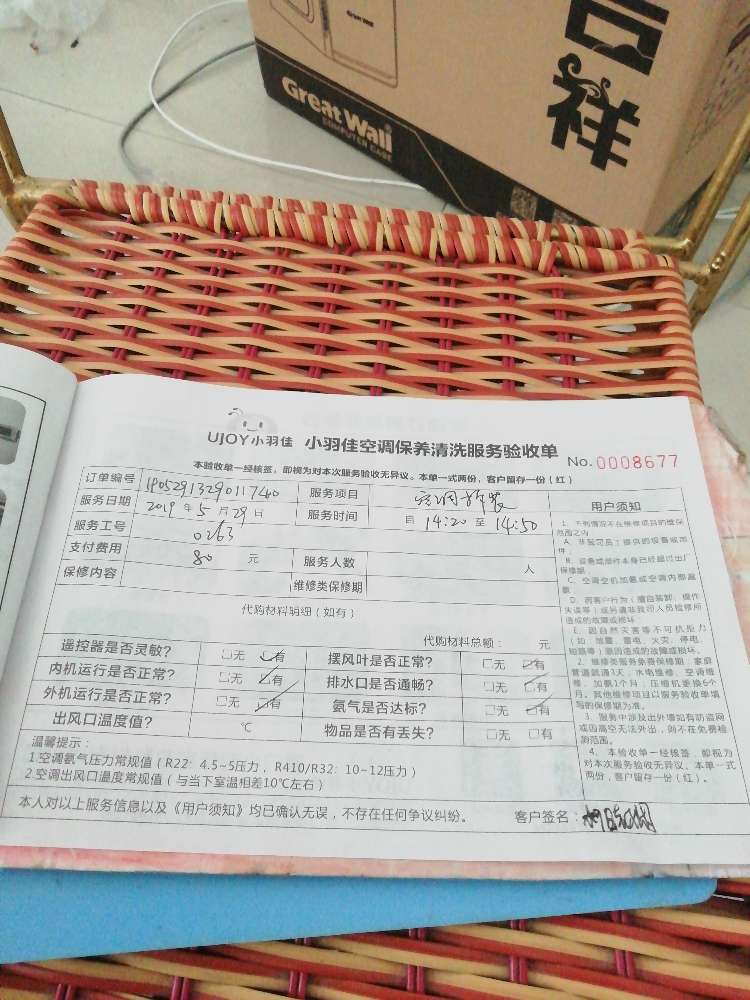 吉祥
Great Wall
Great Wall
COMPUTER CASE
UJOY小羽佳 小羽佳空调保养清洗服务验收单 No. 0008677
本验收单一经核签，即视为对本次服务验收无异议。本单一式两份，客户留存一份（红）
订单编号 服务项目 空调拆装
服务日期 2019年5月29日 服务时间 自 14:20 至 14:50
服务工号 0263
支付费用 80 元 服务人数 人
保修内容 维修类保修期
代购材料明细（如有）
代购材料总额： 元
遥控器是否灵敏？ 无 有 摆风叶是否正常？ 无 有
内机运行是否正常？ 无 有 排水口是否通畅？ 无 有
外机运行是否正常？ 无 有 氨气是否达标？ 无 有
出风口温度值？ ℃ 物品是否有丢失？ 无 有
温馨提示：
1.空调氨气压力常规值（R22：4.5~5压力，R410/R32：10~12压力）
2.空调出风口温度常规值（与当下室温相差10℃左右）
本人对以上服务信息以及《用户须知》均已确认无误，不存在任何争议纠纷。 客户签名：
用户须知
1、下列情况不在维修项目的维保
范围之内
A、非我司员工提供的设备或部
件；
B、设备或部件本身已经超过出厂
保修期
C、空调空机加氨或空调内部漏
氨
D、因客户行为（擅自装卸、操作
失误等）或另请非我司人员检修所
造成的故障或损坏
E、因自然灾害等不可抗拒力
（如：地震、雷电、火灾、停电、
短路等）原因造成的故障或损坏。
2、维修类服务免费保修期：家庭
管道疏通3天；水电维修、空调维
修、加氨1个月；压缩机更换6个
月。其他维修项目以服务验收单填
写的保修期为准。
3、服务中涉及出外墙如有防盗网
或因高空无法外出，则不在免费检
测范围。
4、本验收单一经核签，即视为
对本次服务验收无异议。本单一式
两份，客户留存一份（红）。